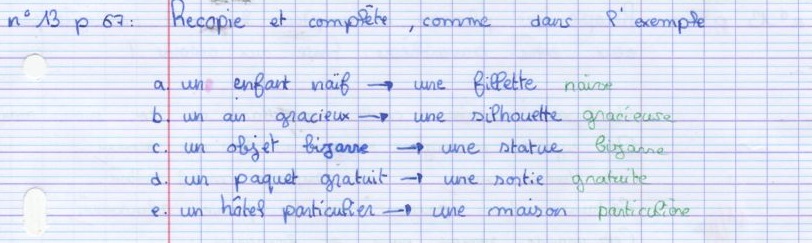 n° 13 p 67: Recopie et complète, comme dans l'exemple
a. un enfant naïf → une fillette naïve
b. un air gracieux → une silhouette gracieuse
c. un objet bizarre → une statue bizarre
d. un paquet gratuit → une sortie gratuite
e. un hôtel particulier → une maison particulière